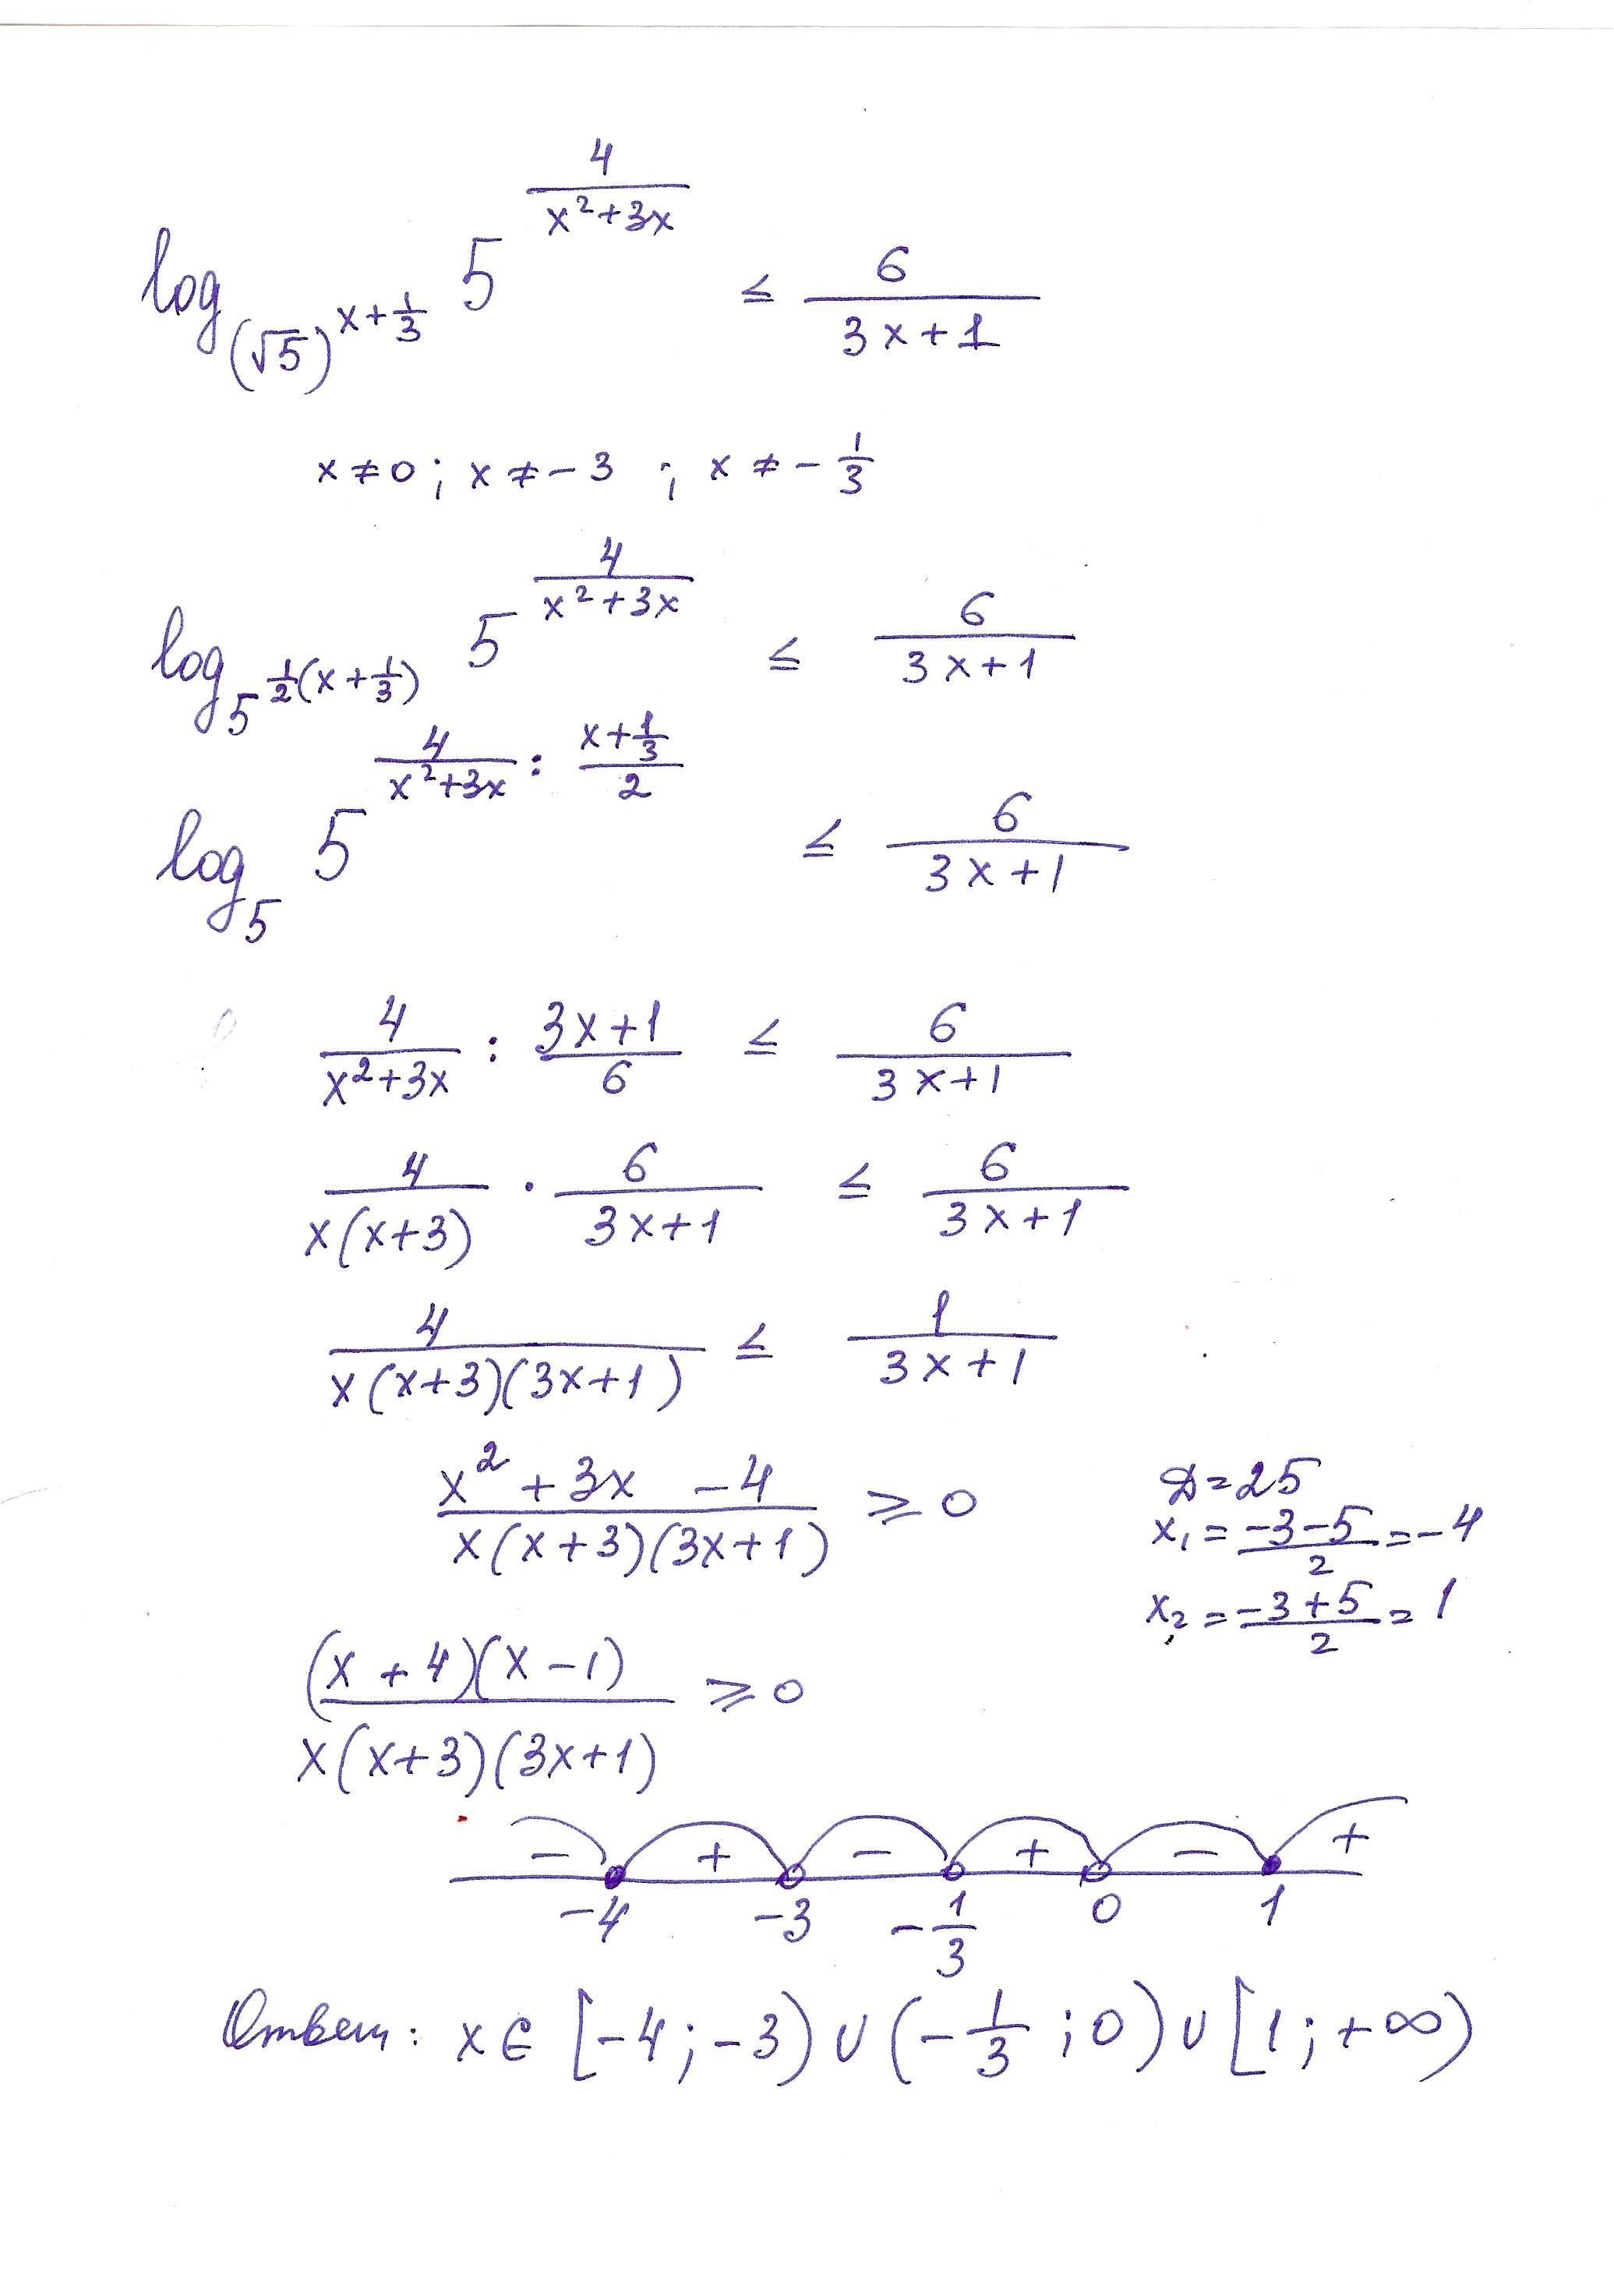 log_{(√5)^{x+1/3}} 5^{4/(x²+3x)} ≤ 6/(3x+1)
x≠0; x≠-3; x≠-1/3
log_{5^{1/2(x+1/3)}} 5^{4/(x²+3x)} ≤ 6/(3x+1)
log_5 5^{4/(x²+3x) : (x+1/3)/2} ≤ 6/(3x+1)
4/(x²+3x) : (3x+1)/6 ≤ 6/(3x+1)
4/(x(x+3)) · 6/(3x+1) ≤ 6/(3x+1)
4/(x(x+3)(3x+1)) ≤ 1/(3x+1)
(x²+3x-4)/(x(x+3)(3x+1)) ≥ 0
D=25
x₁=(-3-5)/2=-4
x₂=(-3+5)/2=1
(x+4)(x-1)/(x(x+3)(3x+1)) ≥ 0
- + - + - +
-4 -3 -1/3 0 1
Ответ: x∈[-4;-3)∪(-1/3;0)∪[1;+∞)